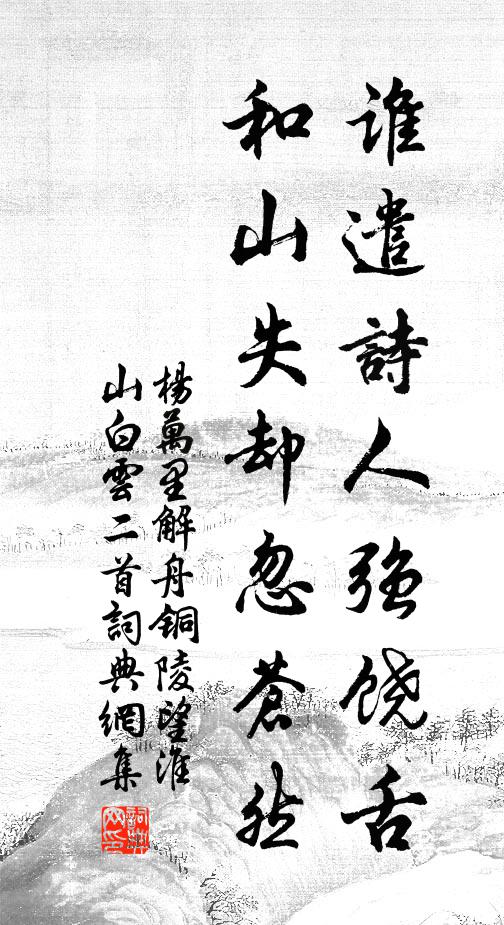 谁遣詩人強饒舌
和山失却忽蒼然
楊萬里解舟铜陵望淮
山白雲二首詞典網集